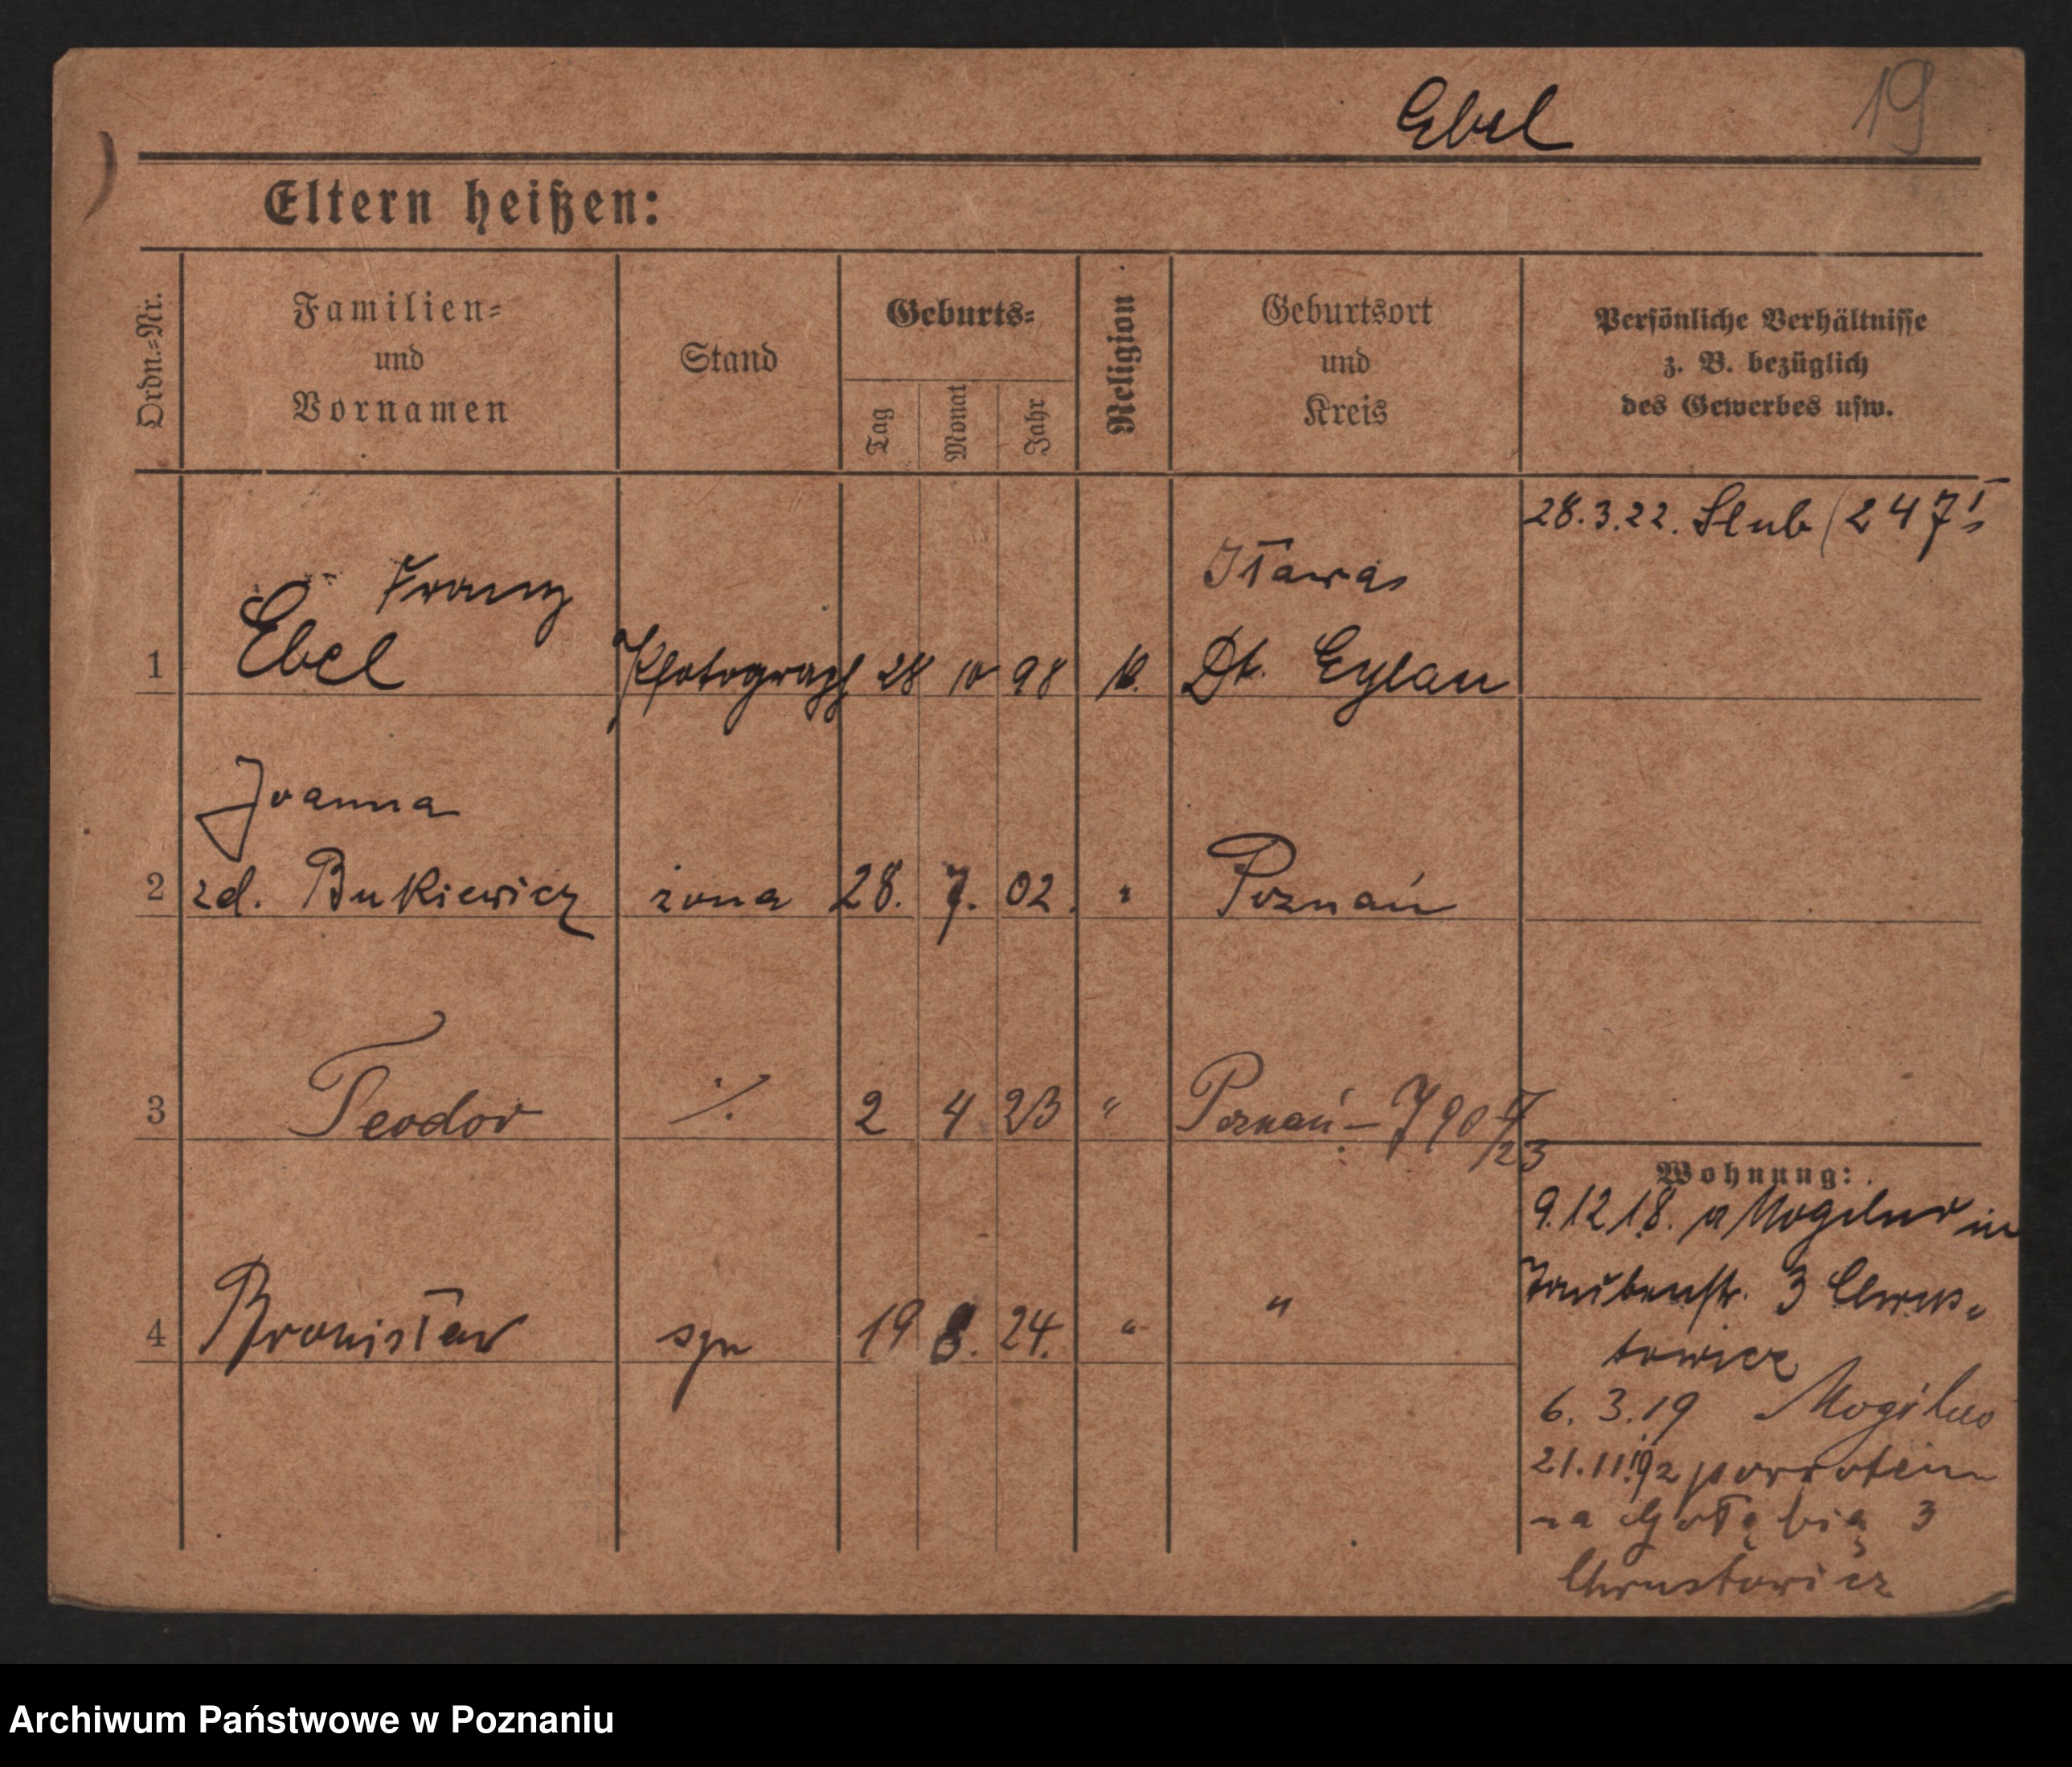 Ebel
19
Eltern heißen:
Ordn.-Nr.
Familien-
und
Vornamen
Stand
Geburts-
Tag
Monat
Jahr
Religion
Geburtsort
und
Kreis
Persönliche Verhältnisse
z. B. bezüglich
des Gewerbes usw.
28.3.22. Slub (247
Franz
Iława
1 Ebel Photograph 28 10 98 k. Dt. Eylau
Joanna
2 zd. Bukiewicz żona 28. 7. 02. " Poznań
3 Teodor ·/. 2 4 23 " Poznań – 790
/23
4 Bronisław syn 19 8. 24. " "
Wohnung:
9.12.18. a Mogilno in
Taubenstr. 3 Chrus-
towicz
6. 3.19 Mogilno
21.11.19 z powrotem
na Gołębią 3
Chrustowicz
Archiwum Państwowe w Poznaniu